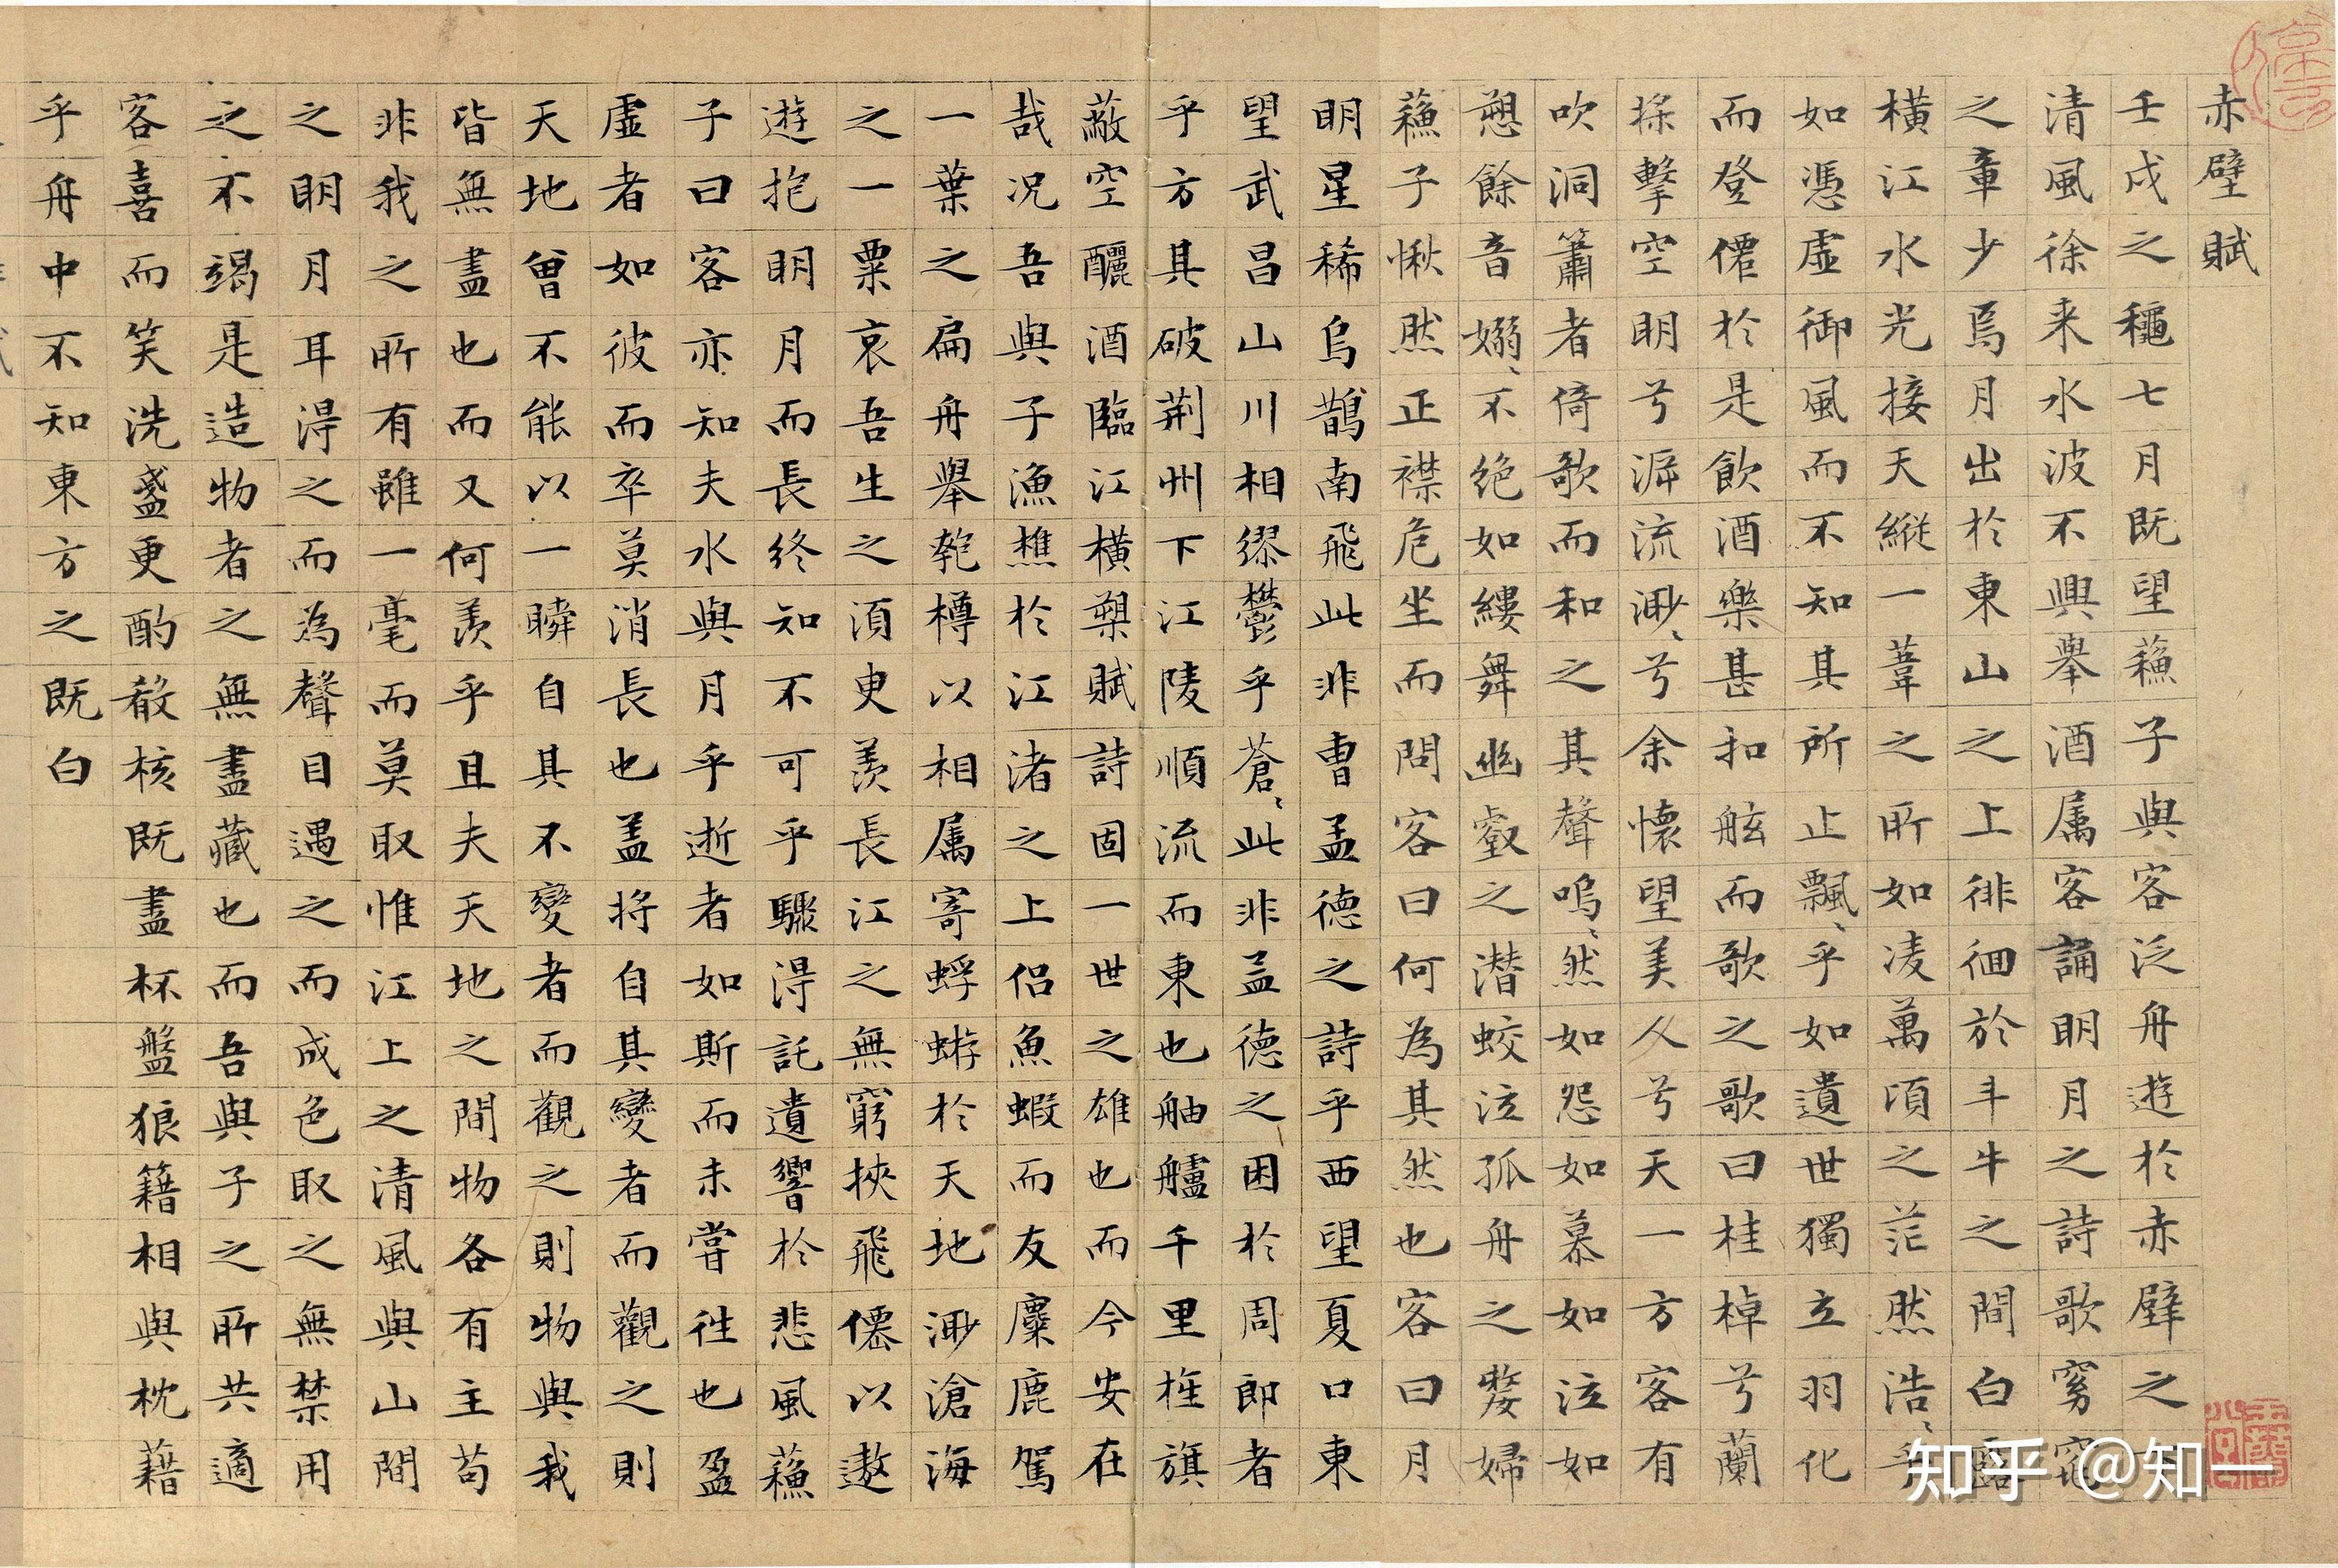 赤壁賦
壬戌之穐七月既望蘓子與客泛舟遊於赤壁之
清風徐来水波不興舉酒属客誦明月之詩歌窈窕
之章少焉月出於東山之上徘徊於斗牛之間白露
橫江水光接天縱一葦之所如凌萬頃之茫然浩〻乎
如憑虛御風而不知其所止飄〻乎如遺世獨立羽化
而登僊於是飲酒樂甚扣舷而歌之歌曰桂棹兮蘭
槳擊空明兮泝流渺〻兮余懷望美人兮天一方客有
吹洞簫者倚歌而和之其聲嗚〻然如怨如慕如泣如
愬餘音嫋〻不絕如縷舞幽壑之潛蛟泣孤舟之嫠婦
蘓子愀然正襟危坐而問客曰何為其然也客曰月
明星稀烏鵲南飛此非曹孟德之詩乎西望夏口東
望武昌山川相繆鬱乎蒼〻此非孟德之困於周郎者
乎方其破荊州下江陵順流而東也舳艫千里旌旗
蔽空釃酒臨江橫槊賦詩固一世之雄也而今安在
哉况吾與子漁樵於江渚之上侣魚蝦而友麋鹿駕
一葉之扁舟舉匏樽以相属寄蜉蝣於天地渺滄海
之一粟哀吾生之須臾羨長江之無窮挾飛僊以遨
遊抱明月而長終知不可乎驟得託遺響於悲風蘓
子曰客亦知夫水與月乎逝者如斯而未嘗往也盈
虛者如彼而卒莫消長也盖將自其變者而觀之則
天地曾不能以一瞬自其不變者而觀之則物與我
皆無盡也而又何羨乎且夫天地之間物各有主苟
非我之所有雖一毫而莫取惟江上之清風與山間
之明月耳得之而為聲目遇之而成色取之無禁用
之不竭是造物者之無盡藏也而吾與子之所共適
客喜而笑洗盞更酌肴核既盡杯盤狼籍相與枕藉
乎舟中不知東方之既白
知乎 @知一